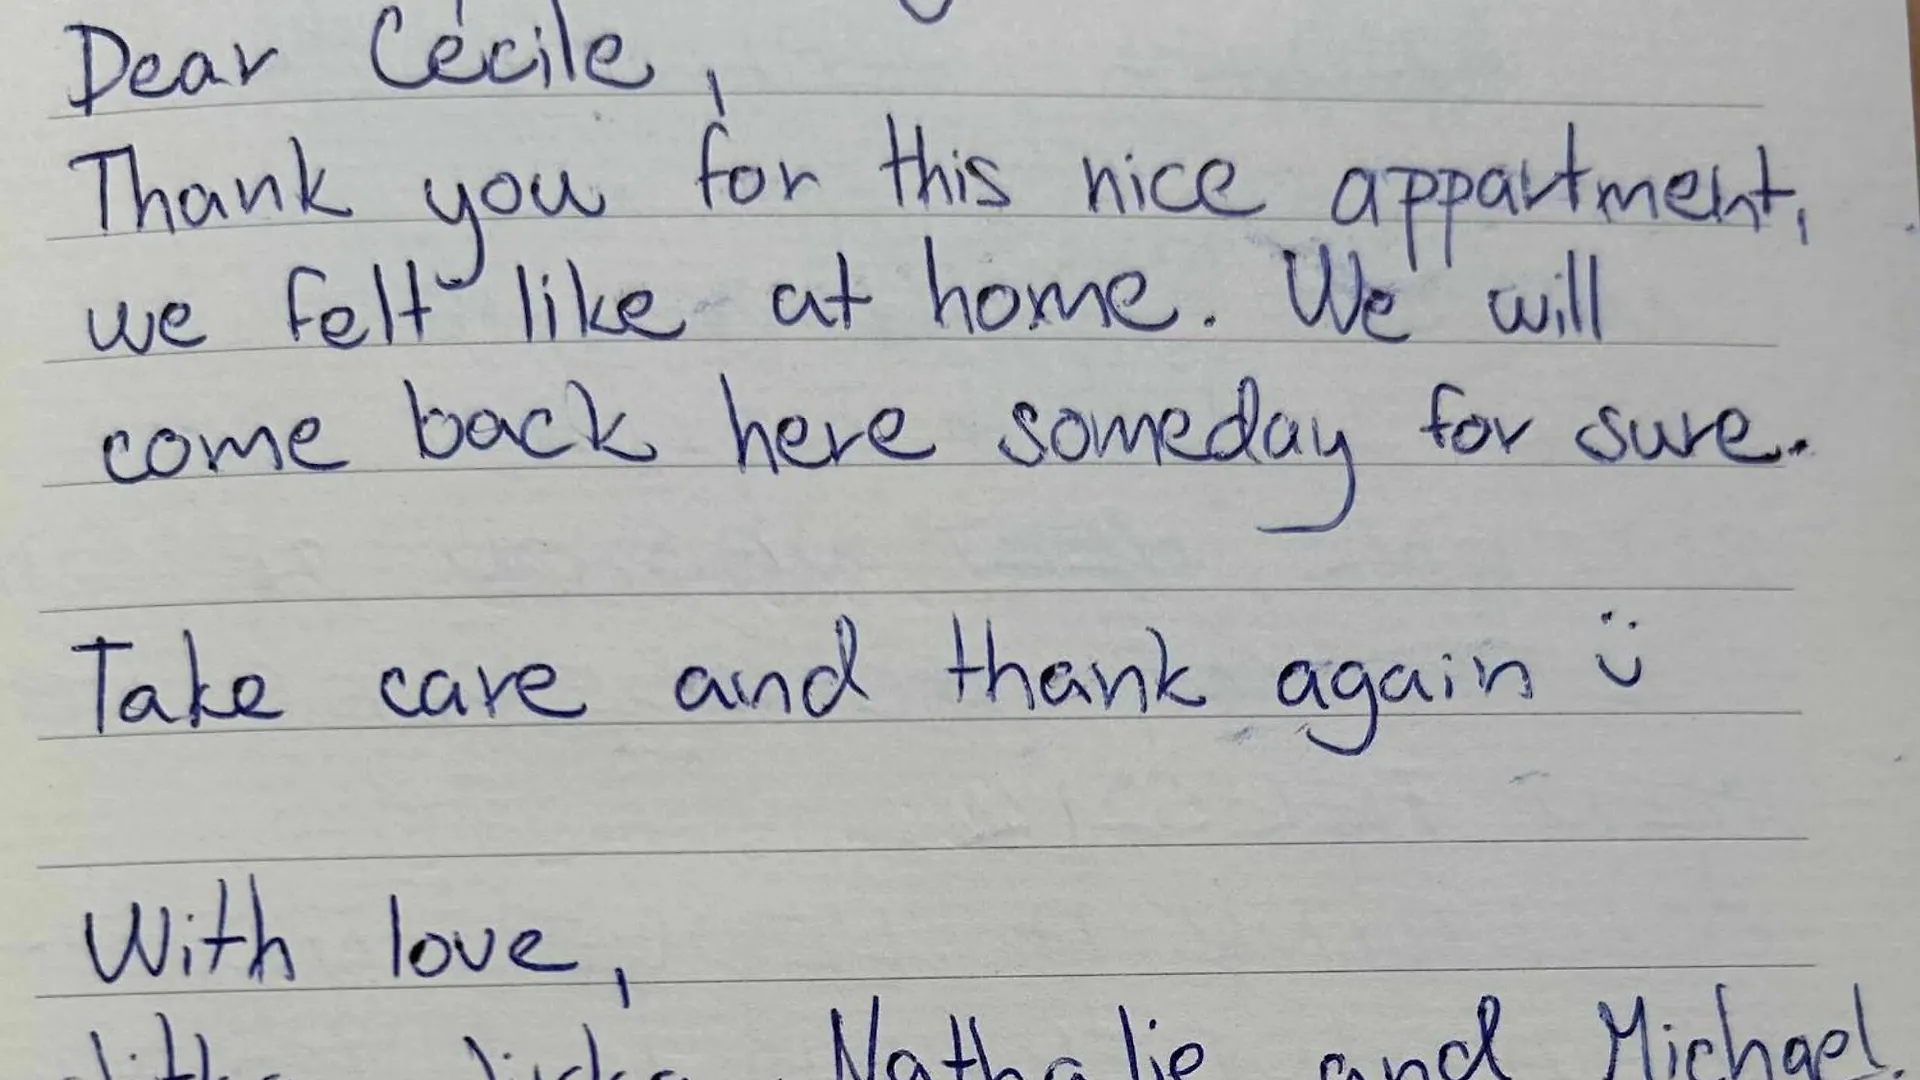 Dear Cécile,
Thank you for this nice appartment,
we felt like at home. We will
come back here someday for sure.
Take care and thank again :)
With love,
Nathalie and Michael.